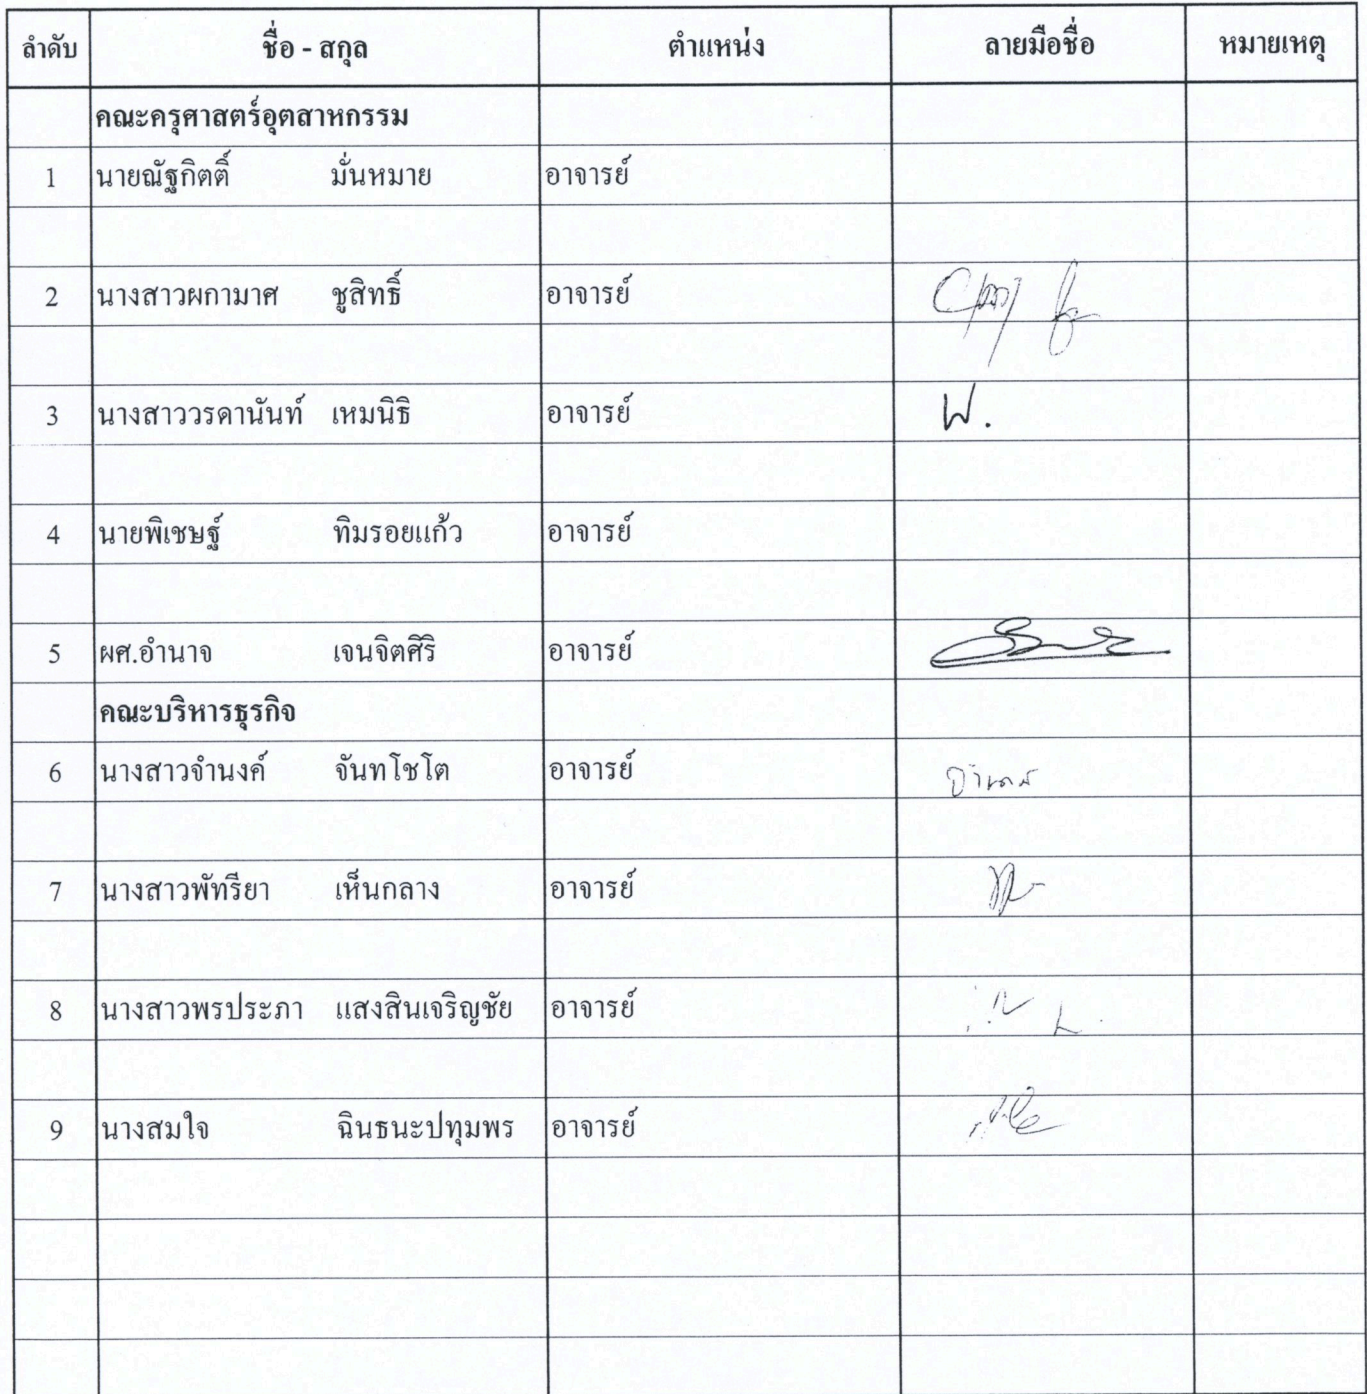 ลำดับ ชื่อ - สกุล ตำแหน่ง ลายมือชื่อ หมายเหตุ
คณะครุศาสตร์อุตสาหกรรม
1 นายณัฐกิตติ์ มั่นหมาย อาจารย์
2 นางสาวผกามาศ ชูสิทธิ์ อาจารย์
3 นางสาววรดานันท์ เหมนิธิ อาจารย์ W.
4 นายพิเชษฐ์ ทิมรอยแก้ว อาจารย์
5 ผศ.อำนาจ เจนจิตศิริ อาจารย์
คณะบริหารธุรกิจ
6 นางสาวจำนงค์ จันทโชโต อาจารย์
7 นางสาวพัทรียา เห็นกลาง อาจารย์
8 นางสาวพรประภา แสงสินเจริญชัย อาจารย์
9 นางสมใจ ฉินธนะปทุมพร อาจารย์